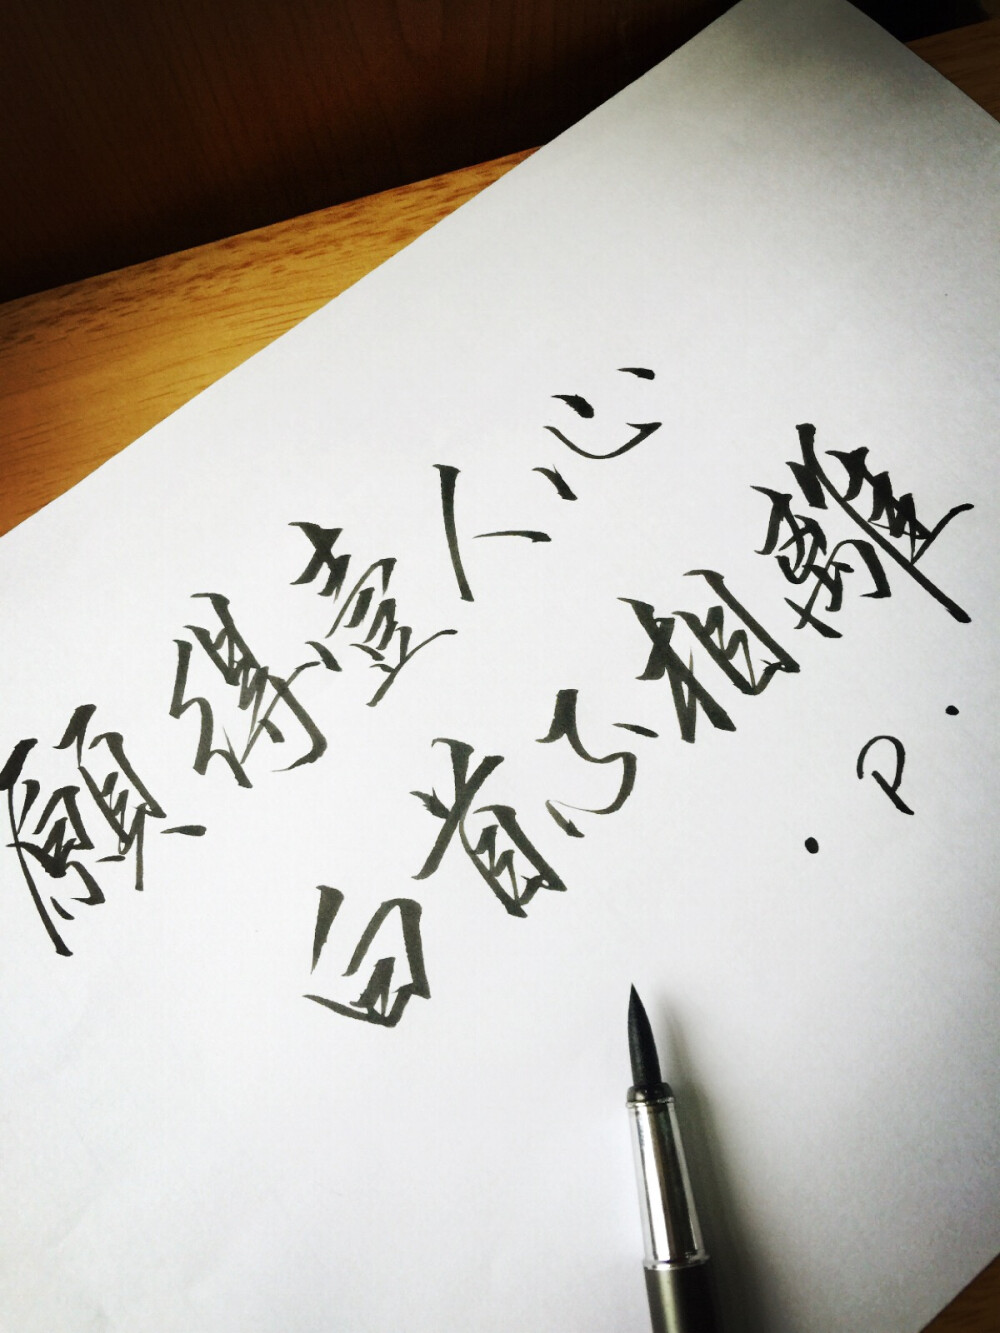 願得壹人心
白首不相離
·P·